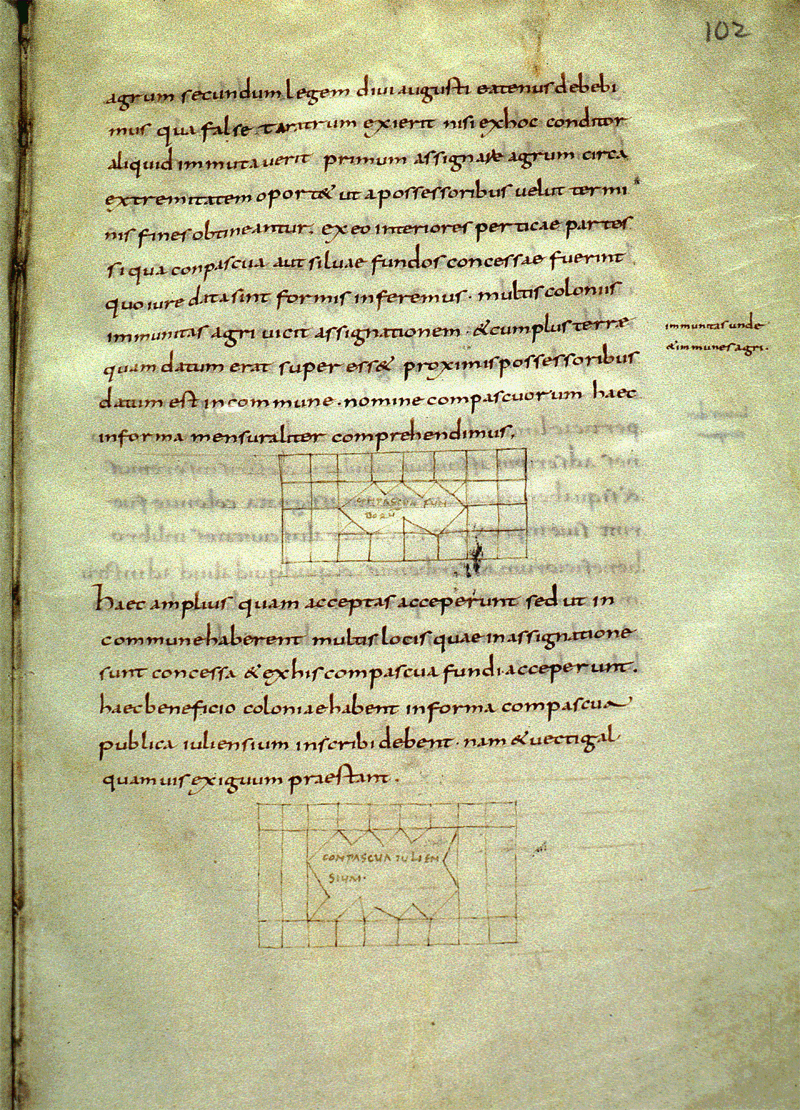 102
agrum secundum legem diui augusti eatenus debebi
mus qua false tararrum exierit nisi exhoc conditor
aliquid immutauerit primum assignare agrum circa
extremitatem oport& ut apossessoribus uelut termi
nis fines obtineantur. ex eo interiores perticae partes
si qua conpascua aut siluae fundos concessae fuerint
quo iure data sint formis inferemus. multis coloniis
immunitas agri uicit assignationem. &cumplus terrae
quam datum erat super ess& proximis possessoribus
datum est in commune. nomine compascuorum haec
informa mensuraliter comprehendimus.
immunitas unde
&immunes agri.
COMPASCUA IULI
haec amplius quam acceptas acceperunt sed ut in
commune haberent multis locis quae in assignatione
sunt concessa &exhis compascua fundi acceperunt.
haec beneficio coloniae habent informa compascua
publica iuliensium inscribi debent. nam &uectigal
quam uis exiguum praestant.
COMPASCUA IULIEN
SIUM.